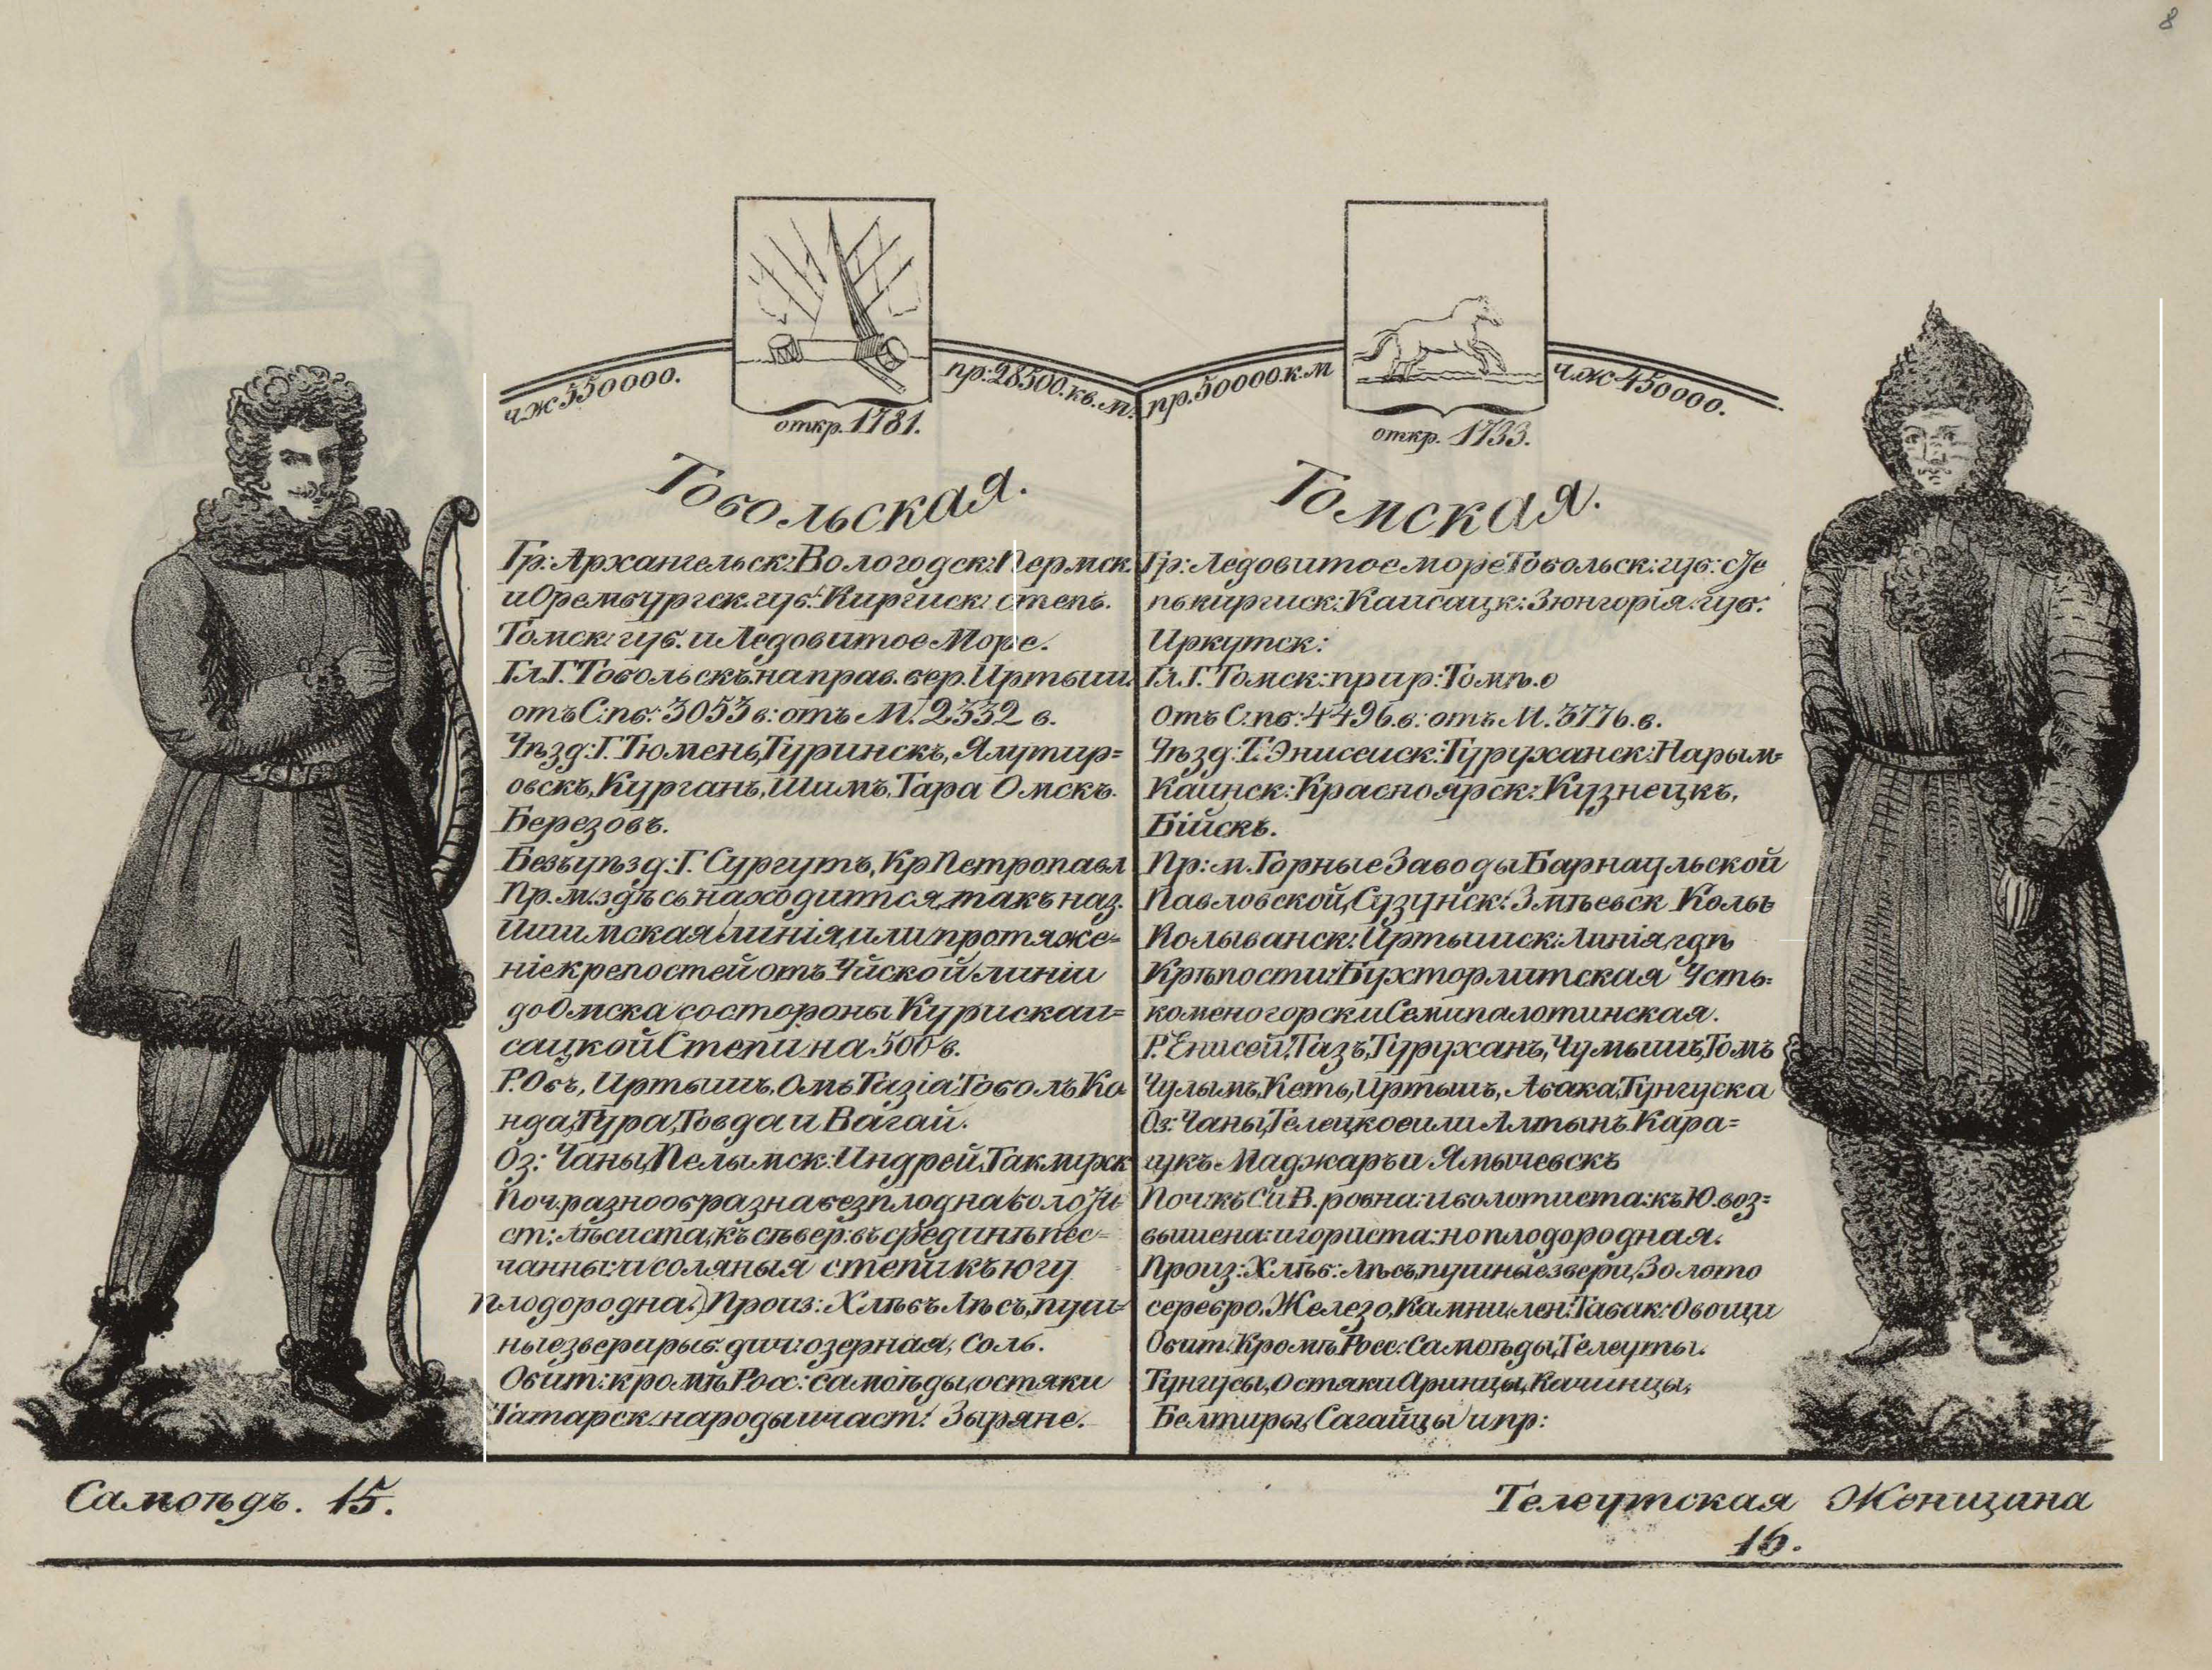 8
чж 550000.
откр. 1781.
пр: 28500. кв. м.
пр. 50000. к м
откр. 1733.
ч. ж 450000.
Тобольская.
Гр: Архангельск: Вологодск: Пермск.
и Орембургск. губ: Киргиск: степь.
Томск: губ. и Ледовитое Море.
Гл. Г. Тобольскъ. на прав. бер. Иртыш.
отъ С: пб: 3053 в: отъ М: 2332 в.
Уѣзд: Г. Тюмень, Туринскъ, Ялутир=
овскъ, Курганъ, Ишимъ, Тара Омскъ.
Березовъ.
Безъуѣзд: Г. Сургутъ, Кр Петропавл
Пр. м. здѣсь находится, такъ наз.
Ишимская линія, или протяже=
ніе крепостей отъ Уйской линіи
до Омска со стороны Курискаи=
сацкой Степи на 500 в.
Р. Обь, Иртышъ, Омь Тазіа Тоболъ Ко
нда, Тура, Товда и Вагай.
Оз: Чаны, Пелымск: Индрей, Такмурж
Поч. разнообразна безплодна боло
ст: лѣсиста, къ сѣвер: въ срединѣ пес=
чанны: и соляныя степи къ югу
плодородна.) Произ: Хлѣбъ Лѣсъ, пуш=
ные звери рыб: дич: озерная, соль.
Обит: кромѣ Рос: самоѣды, остяки
Татарск. народы и част: Зыряне.
Томская.
Гр: Ледовитое море Тобольск: губ: Сте
пь киргиск: Каисацк: Зюнгорія: губ:
Иркутск:
Гл. Г. Томск: при р: Томѣ.
отъ С: пб: 4496. в: отъ М. 3776. в.
Уѣзд: Г. Энисеиск: Туруханск: Нарым=
Каинск: Красноярск: Кузнецкъ,
Бійскъ.
Пр: м. Горные Заводы Барнаульской
Павловской, Сузунск: Змѣевск Колы
Колыванск: Иртышск: Линія, гдѣ
Крѣпости: Бухтормитская Усть=
коменогорск и Семипалотинская.
Р. Енисей, Тазъ, Туруханъ, Чумышъ, Томъ
Чулымъ, Кеть, Иртышъ, Абака, Тунгуска
Оз: Чаны, Телецкое или Алтынъ Кара=
цкъ Маджаръ и Ямычевскъ
Поч: къ С: и В. ровна: и болотиста: къ Ю. воз=
вышена: и гориста: но плодородная.
Произ: Хлѣб: лѣсъ, пушные звери, Золото
серебро. Железо, Камни, лен: Табак: Овощи
Обит: Кромѣ Росс: Самоѣды, Телеуты.
Тунгусы, остяки Аринцы, Качинцы,
Белтиры, Сагайцы и пр:
Самоѣдъ. 15.
Телеутская Женщина
16.